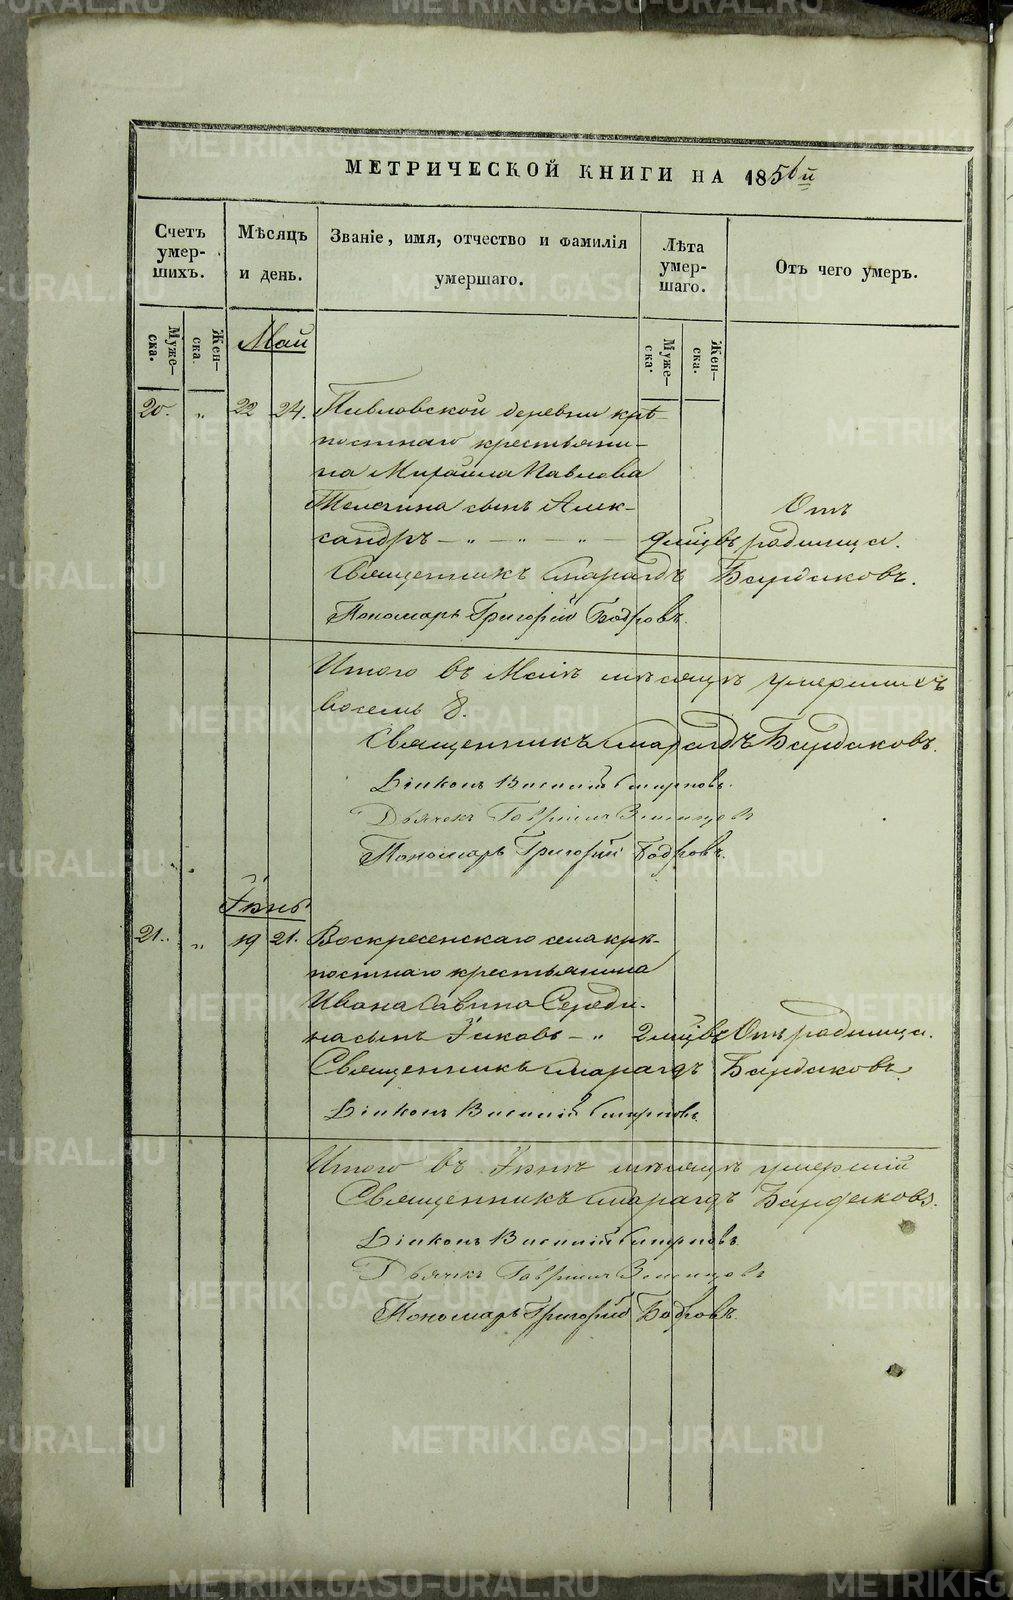 МЕТРИЧЕСКОЙ КНИГИ НА 1856й
Счетъ умер-шихъ.
Мѣсяцъ и день.
Званіе, имя, отчество и фамилія умершаго.
Лѣта умер-шаго.
Отъ чего умеръ.
Муже-ска.
Жен-ска.
Муже-ска.
Жен-ска.
Май
20. „ 22 24. Павловской деревни крѣ-
постнаго крестьяни-
на Михаила Павлова
сынъ Алек- Отъ
сандръ – „ – „ – мцвъ родимца.
Священникъ Смарагдъ Бардаковъ.
Пономарь Григорій Бодровъ.
Итого въ Маіѣ мѣсяцѣ умершихъ
восемь 8.
Священникъ Смарагдъ Бардаковъ.
Діаконъ Василій Смирновъ.
Дьячекъ Гавріилъ
Пономарь Григорій Бодровъ.
Іюнь
21. „ 19 21. Воскресенскаго села крѣ-
постнаго крестьянина
Ивана Савина Середи-
на сынъ Іаковъ – „ 2 мцвъ Отъ родимца.
Священникъ Смарагдъ Бардаковъ.
Діаконъ Василій Смирновъ.
Итого въ Іюнѣ мѣсяцѣ умершій
Священникъ Смарагдъ Бардаковъ.
Діаконъ Василій Смирновъ.
Дьячекъ Гавріилъ
Пономарь Григорій Бодровъ.
METRIKI.GASO-URAL.RU